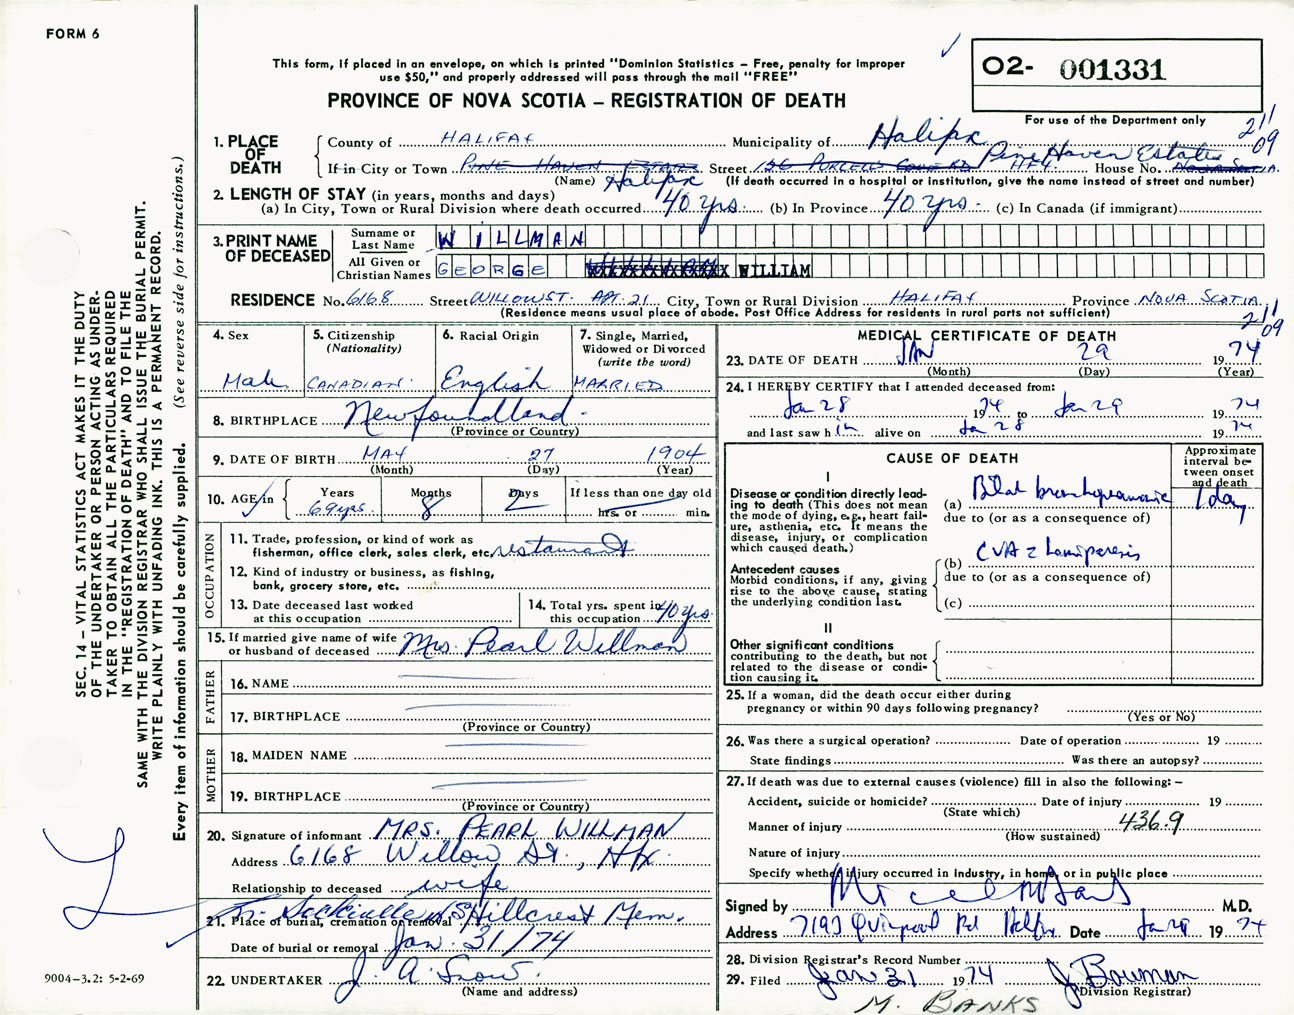 FORM 6
This form, if placed in an envelope, on which is printed "Dominion Statistics – Free, penalty for improper
use $50," and properly addressed will pass through the mail "FREE"
PROVINCE OF NOVA SCOTIA – REGISTRATION OF DEATH
O2- 001331
For use of the Department only
211
09
1. PLACE OF DEATH
County of HALIFAX Municipality of Halifax
If in City or Town PINE HAVEN ESTATES Halifax Street 126 PURCELLS COVE RD Pine Haven Estates HFX. House No. NOVA SCOTIA.
(Name) (If death occurred in a hospital or institution, give the name instead of street and number)
2. LENGTH OF STAY (in years, months and days)
(a) In City, Town or Rural Division where death occurred 40 yrs. (b) In Province 40 yrs. (c) In Canada (if immigrant)
3. PRINT NAME OF DECEASED
Surname or Last Name WILLMAN
All Given or Christian Names GEORGE WILLIAM
RESIDENCE No. 6168 Street WILLOW ST. APT. 21 City, Town or Rural Division HALIFAX Province NOVA SCOTIA
(Residence means usual place of abode. Post Office Address for residents in rural parts not sufficient)
211
09
4. Sex
Male
5. Citizenship
(Nationality)
CANADIAN.
6. Racial Origin
English
7. Single, Married,
Widowed or Divorced
(write the word)
MARRIED
8. BIRTHPLACE Newfoundland.
(Province or Country)
9. DATE OF BIRTH MAY 27 1904
(Month) (Day) (Year)
10. AGE in
Years Months Days If less than one day old
69 yrs. 8 2 hrs. or min.
OCCUPATION
11. Trade, profession, or kind of work as
fisherman, office clerk, sales clerk, etc. restaurant
12. Kind of industry or business, as fishing,
bank, grocery store, etc.
13. Date deceased last worked
at this occupation
14. Total yrs. spent in
this occupation 40 yrs.
15. If married give name of wife
or husband of deceased Mrs. Pearl Willman
FATHER
16. NAME
17. BIRTHPLACE
(Province or Country)
MOTHER
18. MAIDEN NAME
19. BIRTHPLACE
(Province or Country)
20. Signature of informant MRS. PEARL WILLMAN
Address 6168 Willow St., Hfx.
Relationship to deceased wife
21. Place of burial, cremation or removal Sackville N.S. Hillcrest Mem.
Date of burial or removal Jan. 31/74
22. UNDERTAKER J. A. Snow.
(Name and address)
MEDICAL CERTIFICATE OF DEATH
23. DATE OF DEATH JAN 29 1974
(Month) (Day) (Year)
24. I HEREBY CERTIFY that I attended deceased from:
Jan 28 1974 to Jan 29 1974
and last saw h im alive on Jan 28 1974
CAUSE OF DEATH
Approximate
interval be-
tween onset
and death
I
Disease or condition directly lead-
ing to death (This does not mean
the mode of dying, e.g., heart fail-
ure, asthenia, etc. It means the
disease, injury, or complication
which caused death.)
(a) Bilat bronchopneumonia 1 day
due to (or as a consequence of)
Antecedent causes
Morbid conditions, if any, giving
rise to the above cause, stating
the underlying condition last.
(b) CVA c hemiparesis
due to (or as a consequence of)
(c)
II
Other significant conditions
contributing to the death, but not
related to the disease or condi-
tion causing it.
25. If a woman, did the death occur either during
pregnancy or within 90 days following pregnancy?
(Yes or No)
26. Was there a surgical operation? Date of operation 19
State findings Was there an autopsy?
27. If death was due to external causes (violence) fill in also the following: –
Accident, suicide or homicide? Date of injury 19
(State which)
Manner of injury 436.9
(How sustained)
Nature of injury
Specify whether injury occurred in industry, in home, or in public place
Signed by M.D.
Address 7193 Quinpool Rd Halifax Date Jan 29 1974
28. Division Registrar's Record Number
29. Filed Jan 31 1974 J Bowman
(Division Registrar)
M. BANKS
SEC. 14 – VITAL STATISTICS ACT MAKES IT THE DUTY
OF THE UNDERTAKER OR PERSON ACTING AS UNDER-
TAKER TO OBTAIN ALL THE PARTICULARS REQUIRED
IN THE "REGISTRATION OF DEATH" AND TO FILE THE
SAME WITH THE DIVISION REGISTRAR WHO SHALL ISSUE THE BURIAL PERMIT.
WRITE PLAINLY WITH UNFADING INK. THIS IS A PERMANENT RECORD.
Every item of information should be carefully supplied. (See reverse side for instructions.)
9004-3.2: 5-2-69